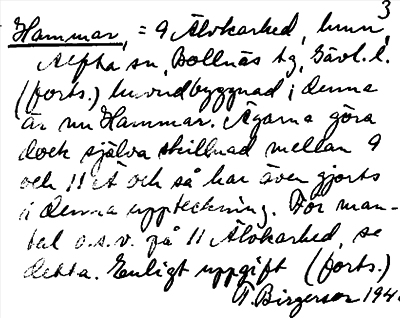 3
Hammar, = 9 Älvkarhed, hmn,
Alfta sn, Bollnäs tg, Gävl. l.
(forts.) huvudbyggnad i denna
är nu Hammar. Ägarna göra
dock själva skillnad mellan 9
och 11 et och så har även gjorts
i denna uppteckning. För man-
tal o.s.v. på 11 Älvkarhed, se
detta. Enligt uppgift (forts.)
F. Birgerson 194